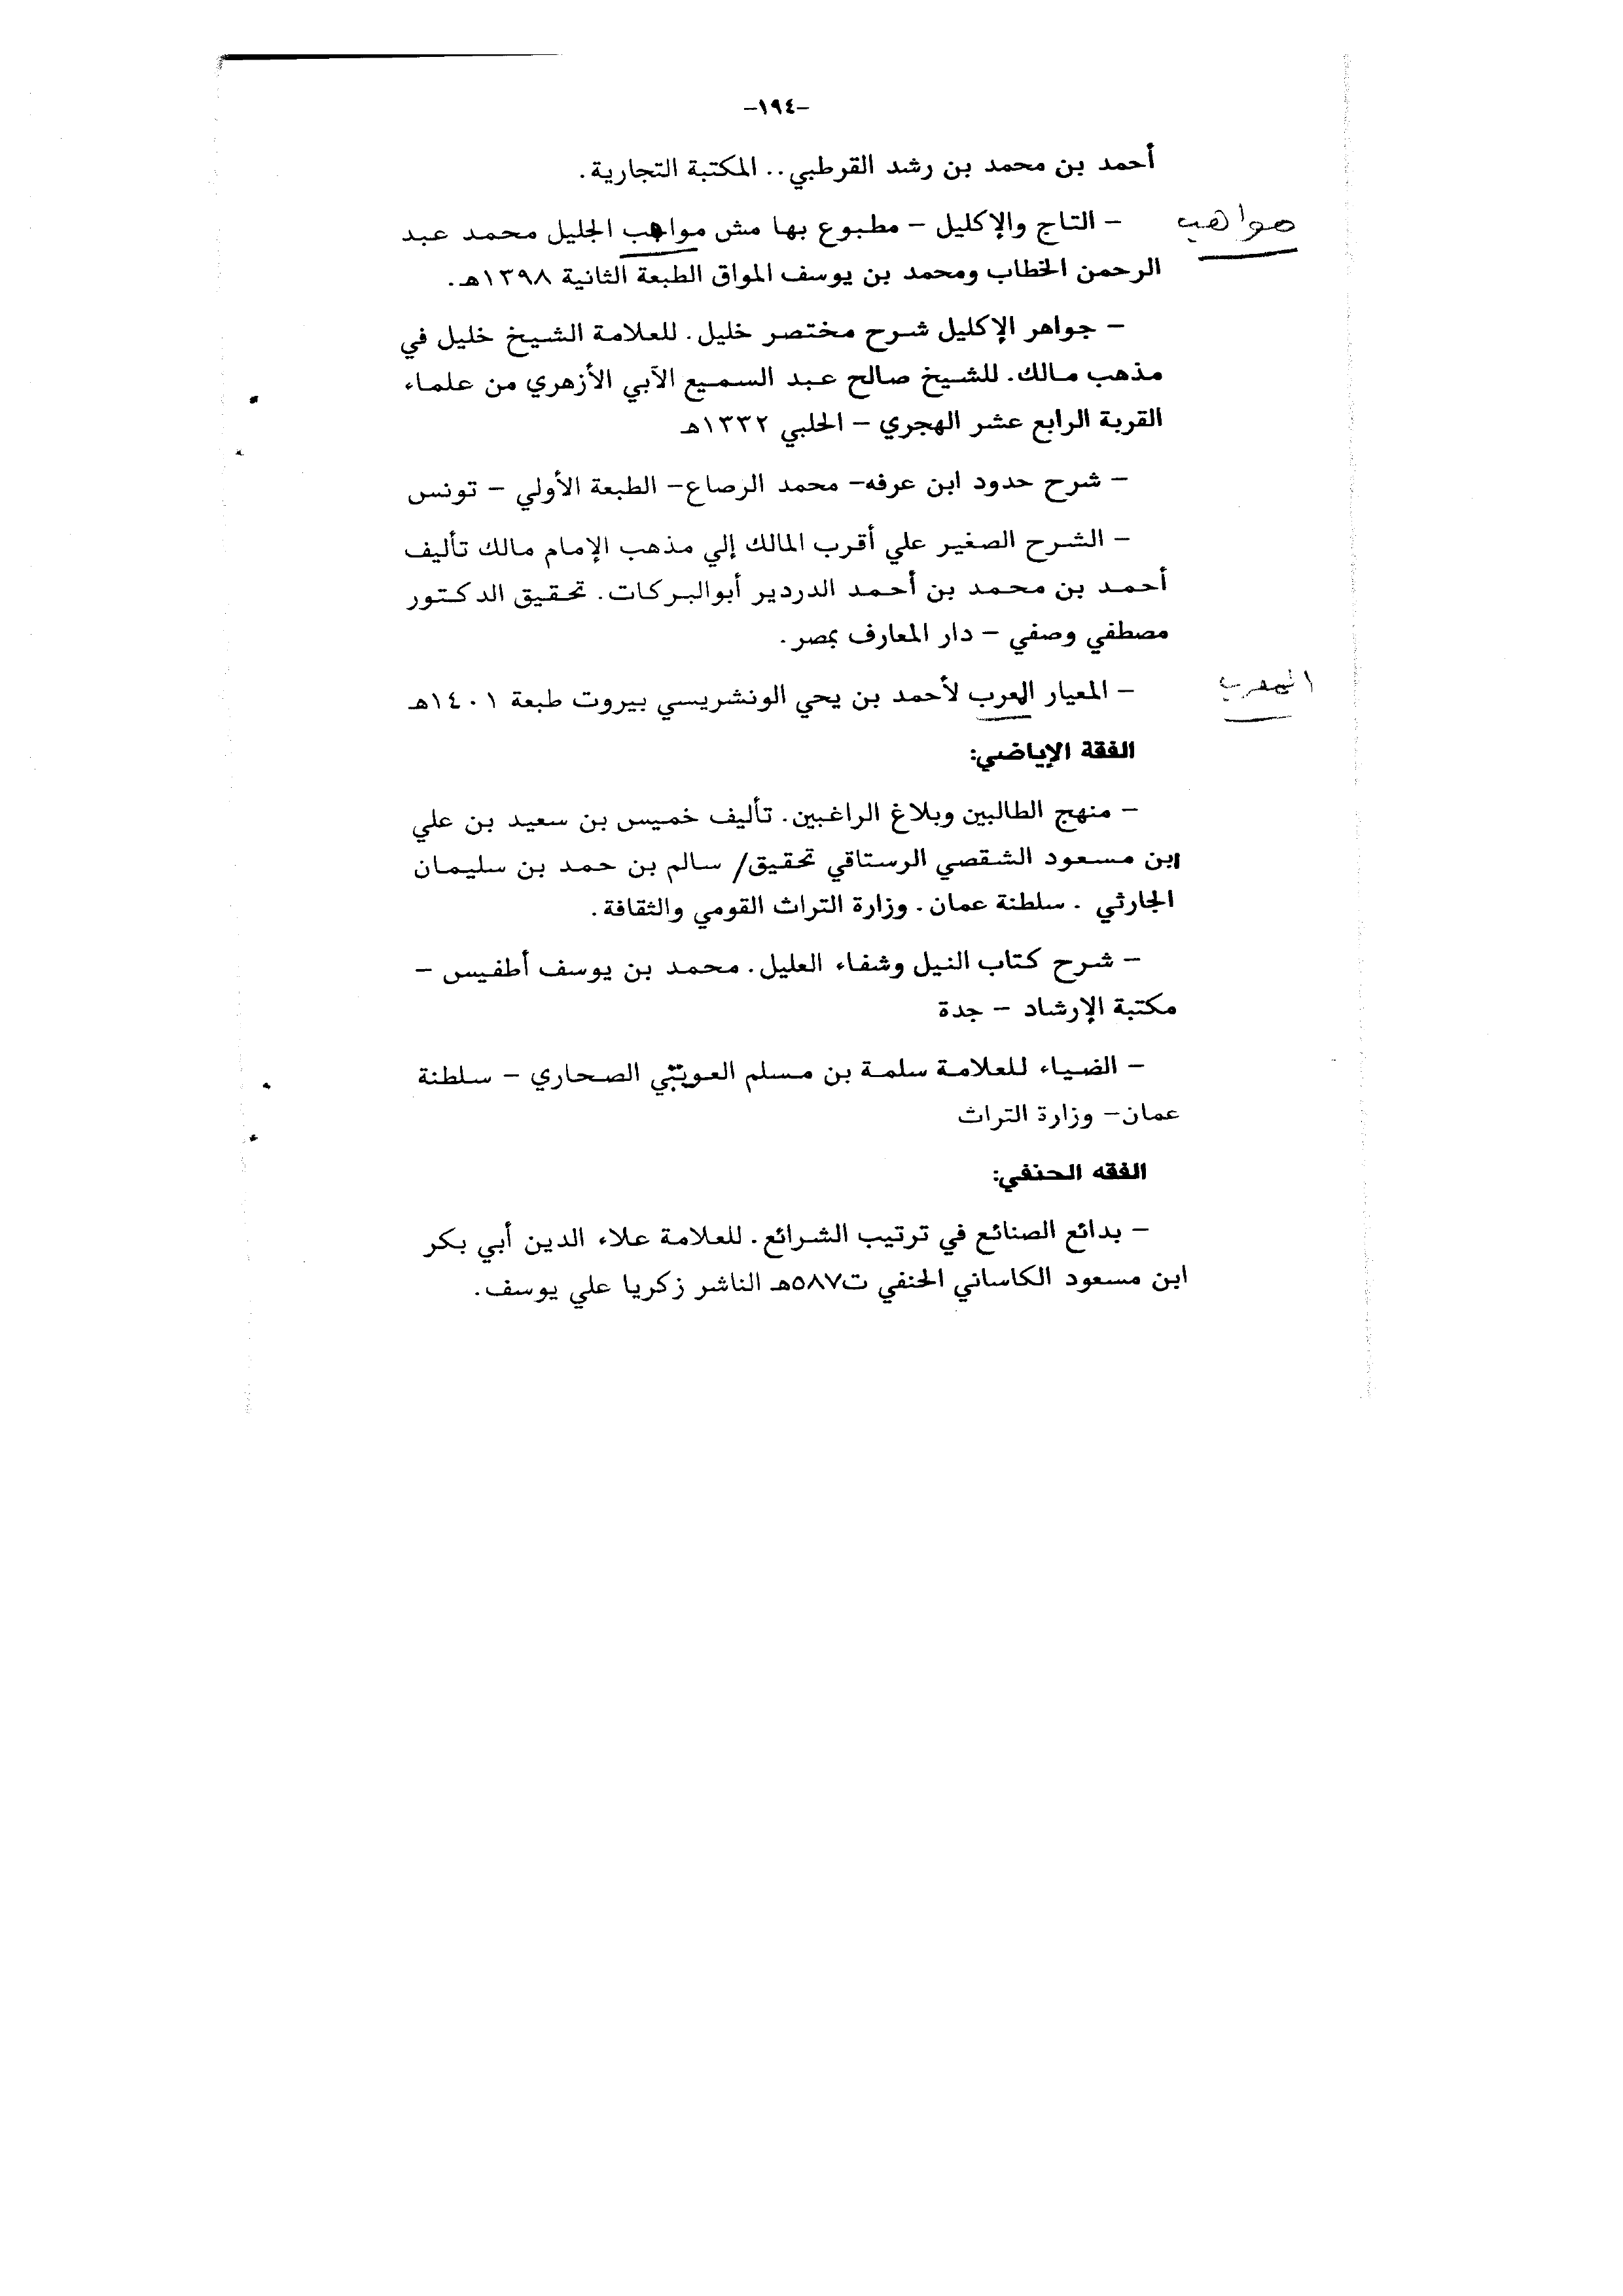 -١٩٤-
أحمد بن محمد بن رشد القرطبي.. المكتبة التجارية.
مواهب
- التاج والإكليل - مطبوع بها مش مواهب الجليل محمد عبد
الرحمن الخطاب ومحمد بن يوسف المواق الطبعة الثانية ١٣٩٨هـ.
- جواهر الإكليل شرح مختصر خليل. للعلامة الشيخ خليل في
مذهب مالك. للشيخ صالح عبد السميع الآبي الأزهري من علماء
القربة الرابع عشر الهجري - الحلبي ١٣٣٢هـ
- شرح حدود ابن عرفه- محمد الرصاع- الطبعة الأولي - تونس
- الشرح الصغير علي أقرب المالك إلي مذهب الإمام مالك تأليف
أحمد بن محمد بن أحمد الدردير أبوالبركات. تحقيق الدكتور
مصطفي وصفي - دار المعارف بمصر.
- المعيار العرب لأحمد بن يحي الونشريسي بيروت طبعة ١٤٠١هـ
الفقة الإياضي:
- منهج الطالبين وبلاغ الراغبين. تأليف خميس بن سعيد بن علي
ابن مسعود الشقصي الرستاقي تحقيق/ سالم بن حمد بن سليمان
الجارثي . سلطنة عمان. وزارة التراث القومي والثقافة.
- شرح كتاب النيل وشفاء العليل. محمد بن يوسف أطفيس -
مكتبة الإرشاد - جدة
- الضياء للعلامة سلمة بن مسلم الصحاري - سلطنة
عمان- وزارة التراث
الفقه الحنفي:
- بدائع الصنائع في ترتيب الشرائع. للعلامة علاء الدين أبي بكر
ابن مسعود الكاساني الحنفي ت٥٨٧هـ الناشر زكريا علي يوسف.